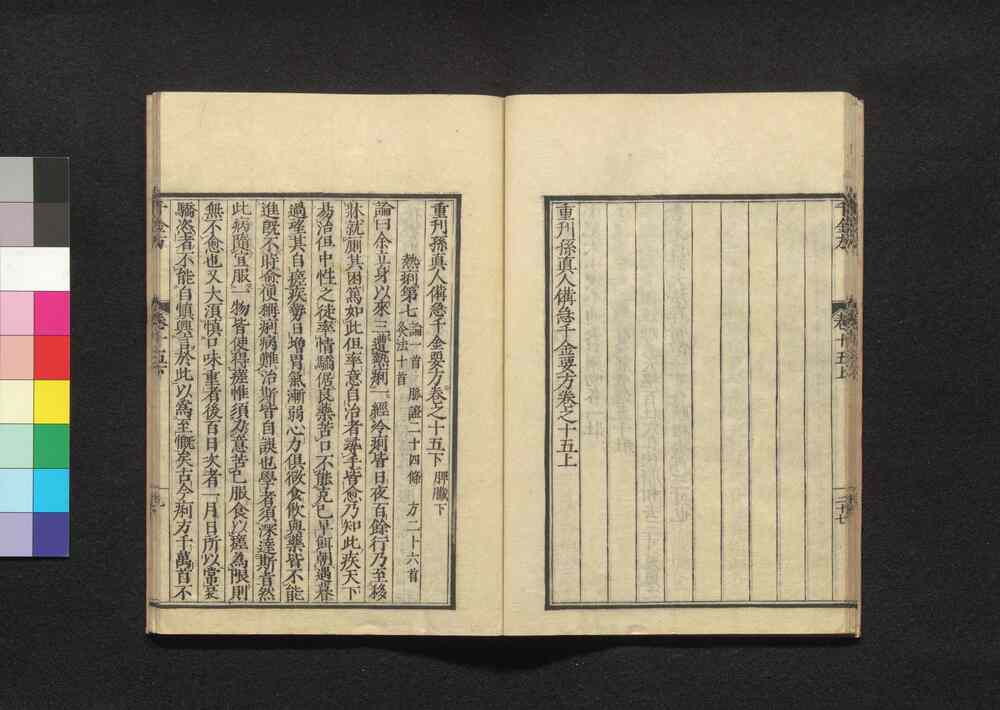 重刊孫真人備急千金要方卷之十五上
千金方
卷十五上
二十七
重刊孫真人備急千金要方卷之十五下 脾臟下
熱痢第七 論一首 脉證二十四條 方二十六首
灸法十首
論曰余立身以來三遭熱痢一經冷痢皆日夜百餘行乃至移
牀就厠其困篤如此但率意自治者尋手皆愈乃知此疾天下
易治但中性之徒率情驕倨良藥苦口不能克己早餌朝遇暮
過望其自瘥疾勢日增胃氣漸弱心力俱微食飲與藥皆不能
進既不時愈便稱痢病難治斯皆自誤也學者須深達斯旨然
此病隨宜服一物皆使得瘥惟須力意苦己服食以瘥為限則
無不愈也又大須慎口味重者後百日次者一月日所以常哀
驕恣者不能自慎興言於此以為至慨矣古今痢方千萬首不
千金方
卷十五下